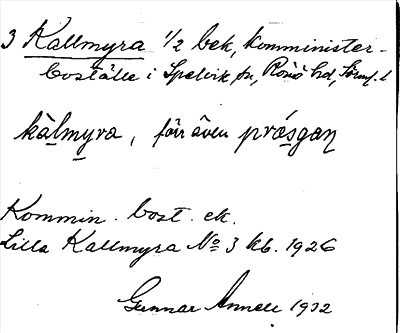 3 Kallmyra 1/2 bek, komminister-
boställe i Spelvik sn, Rönö hd, Sörml. l
kàlmyra, förr även pròsgaɳ
Kommin. bost. ek.
Lilla Kallmyra No 3 kb. 1926
Gunnar Annell 1932